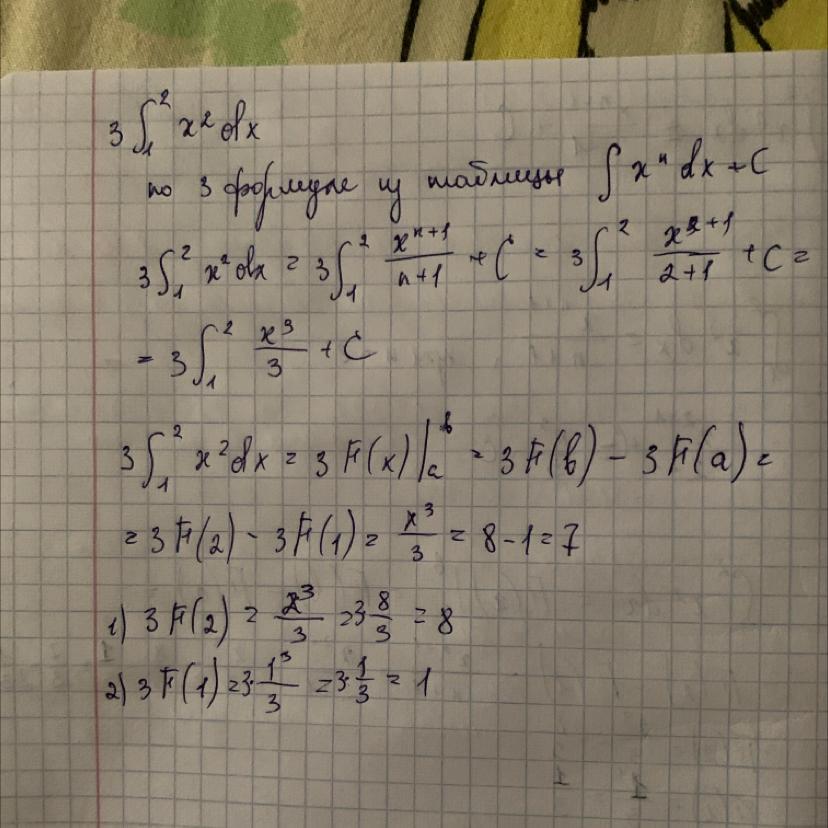 3∫₁² x² dx
по 3 формуле из таблицы ∫ xⁿ dx + C
3∫₁² x² dx = 3∫₁² xⁿ⁺¹/(n+1) + C = 3∫₁² x²⁺¹/(2+1) + C =
= 3∫₁² x³/3 + C
3∫₁² x² dx = 3F(x)|ₐᵇ = 3F(b) - 3F(a) =
= 3F(2) - 3F(1) = x³/3 = 8 - 1 = 7
1) 3F(2) = x³/3 = 3 8/3 = 8
2) 3F(1) = 3·1³/3 = 3·1/3 = 1